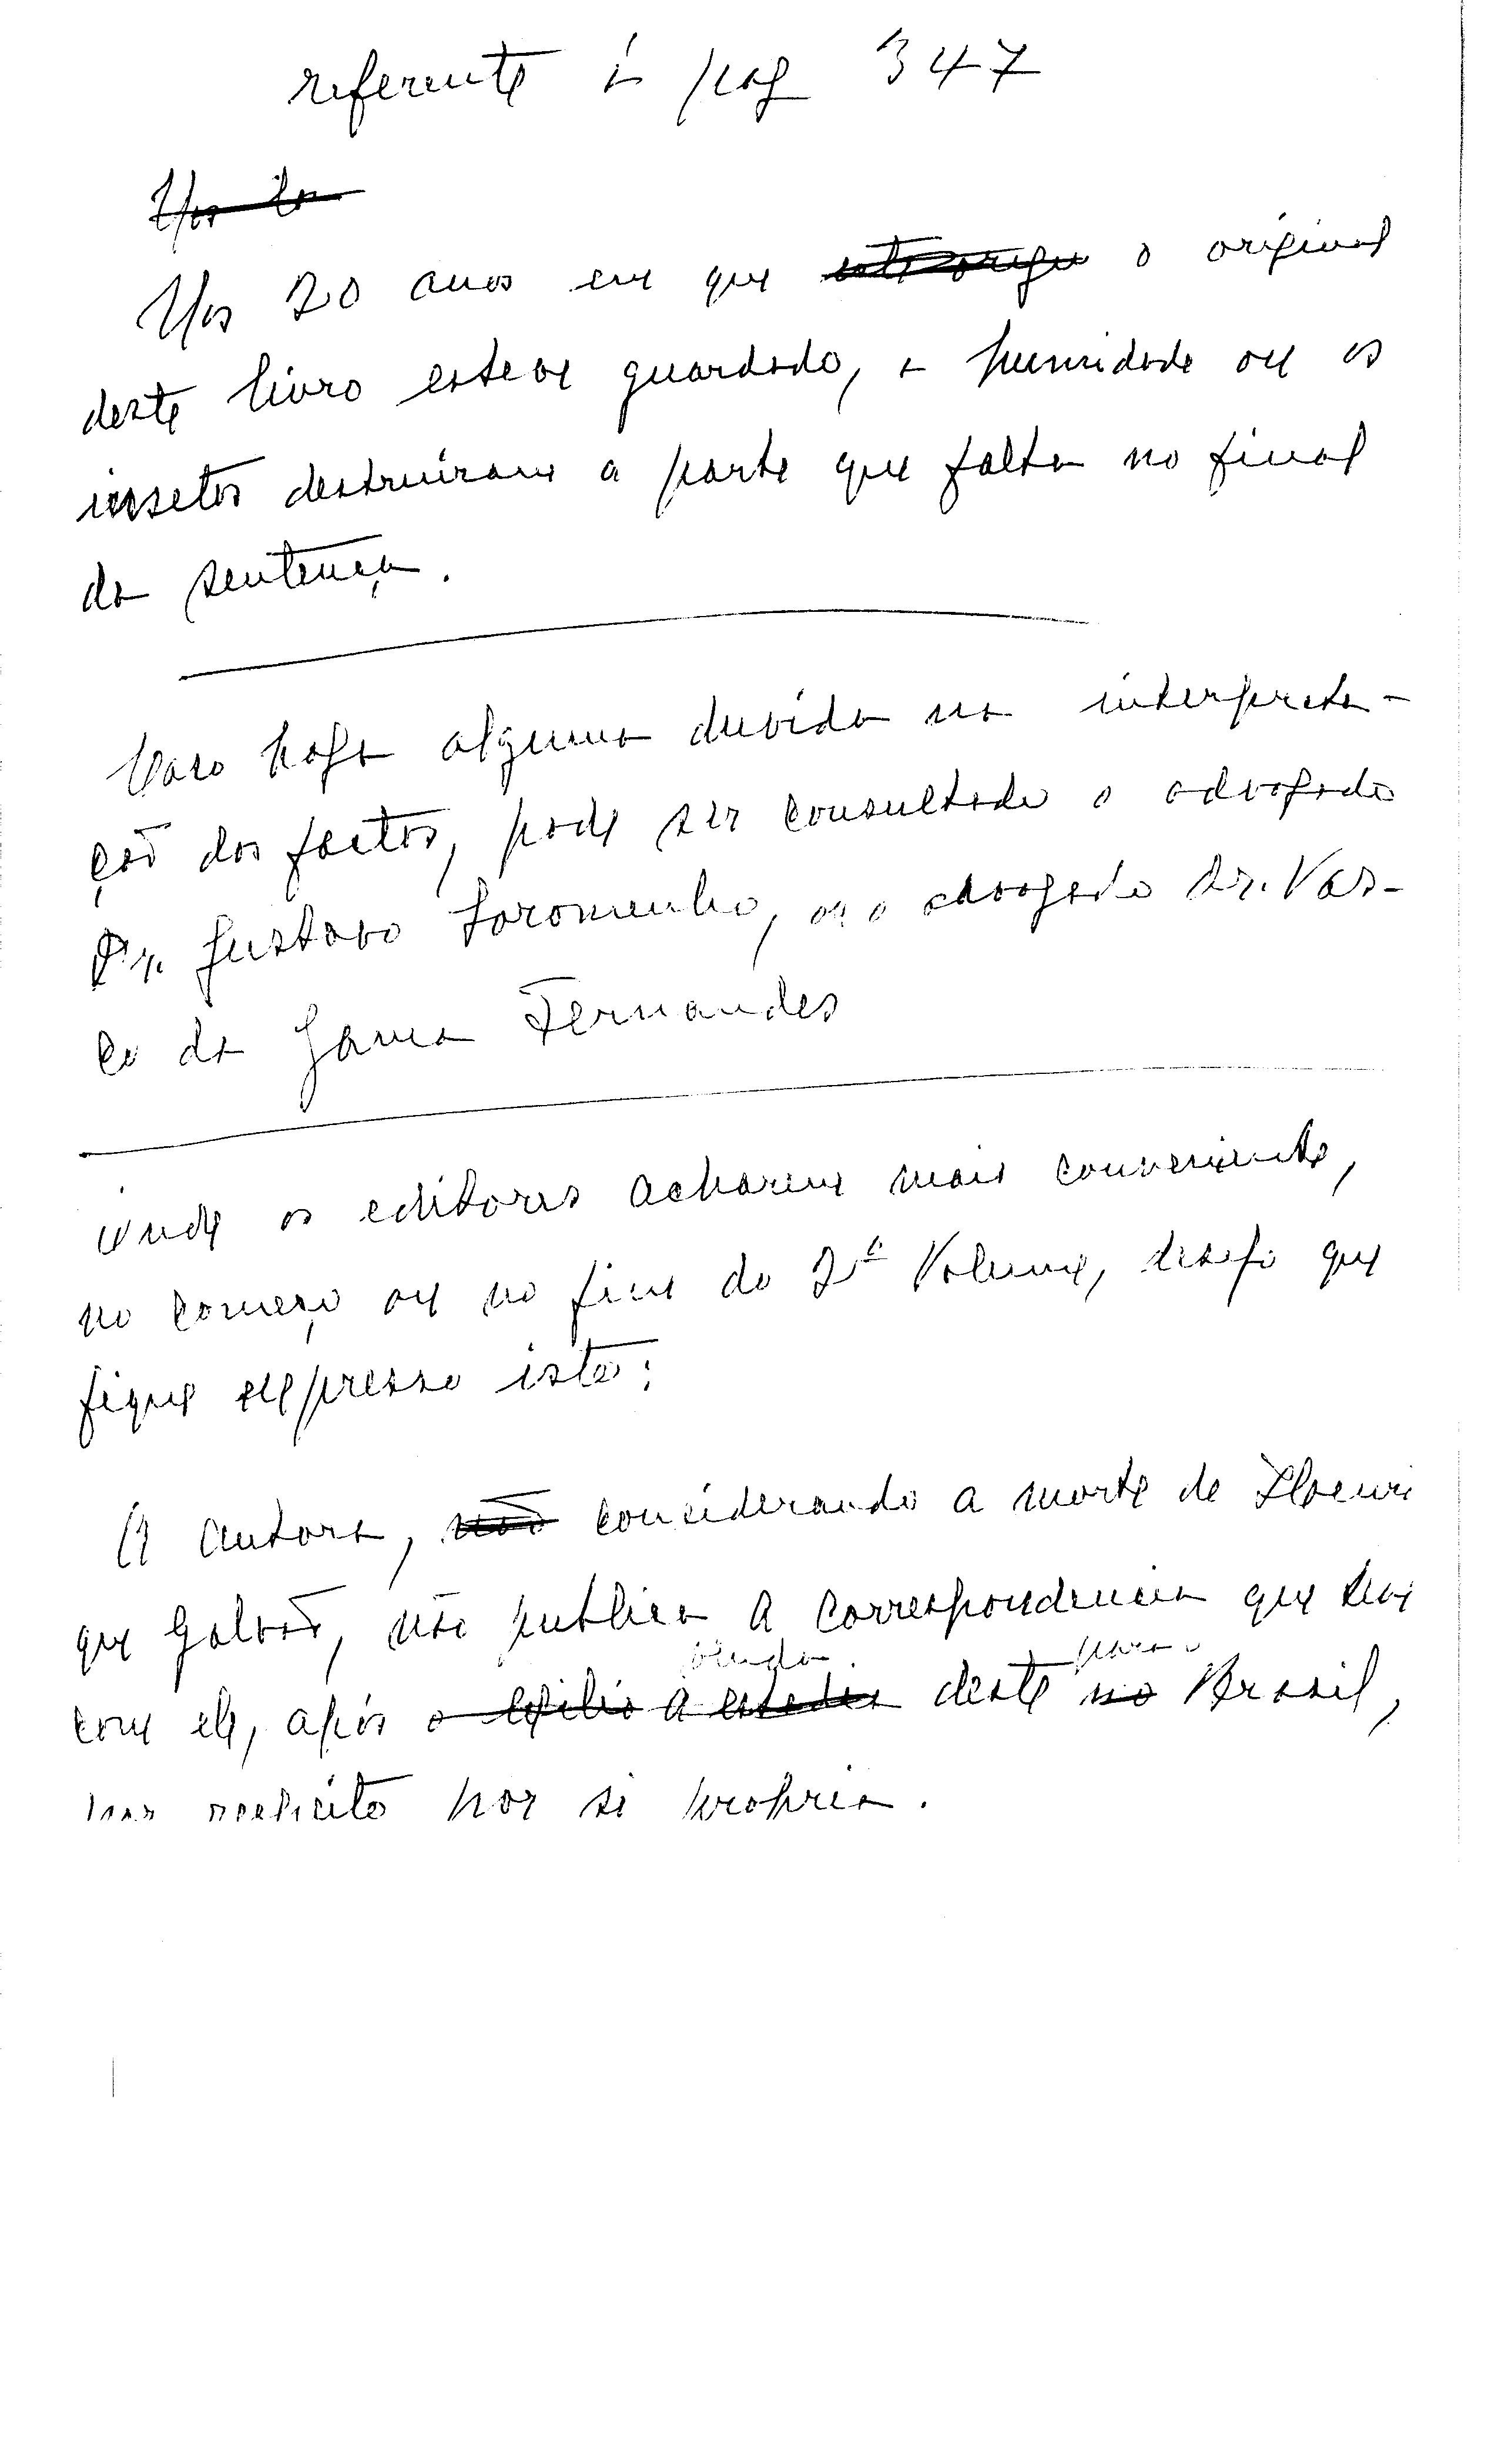 referente á pag 347
Nos 20 anos em que o original
deste livro esteve guardado, a humidade ou os
insetos destruiram a parte que falta no final
da sentença.
Caso haja alguma duvida na interpreta-
ção dos factos, pode ser consultado o advogado
Dr. Gustavo Soromenho, ou o advogado Dr. Vas-
co da Gama Fernandes
onde os editores acharem mais conveniente,
no começo ou no fim do 2º Volume, desejo que
fique expresso isto:
A autora, não considerando a morte de Henri
que Galvão, não publica a correspondencia que teve
vinda para o
com ele, após o exilio a deste no Brasil,
por si propria.